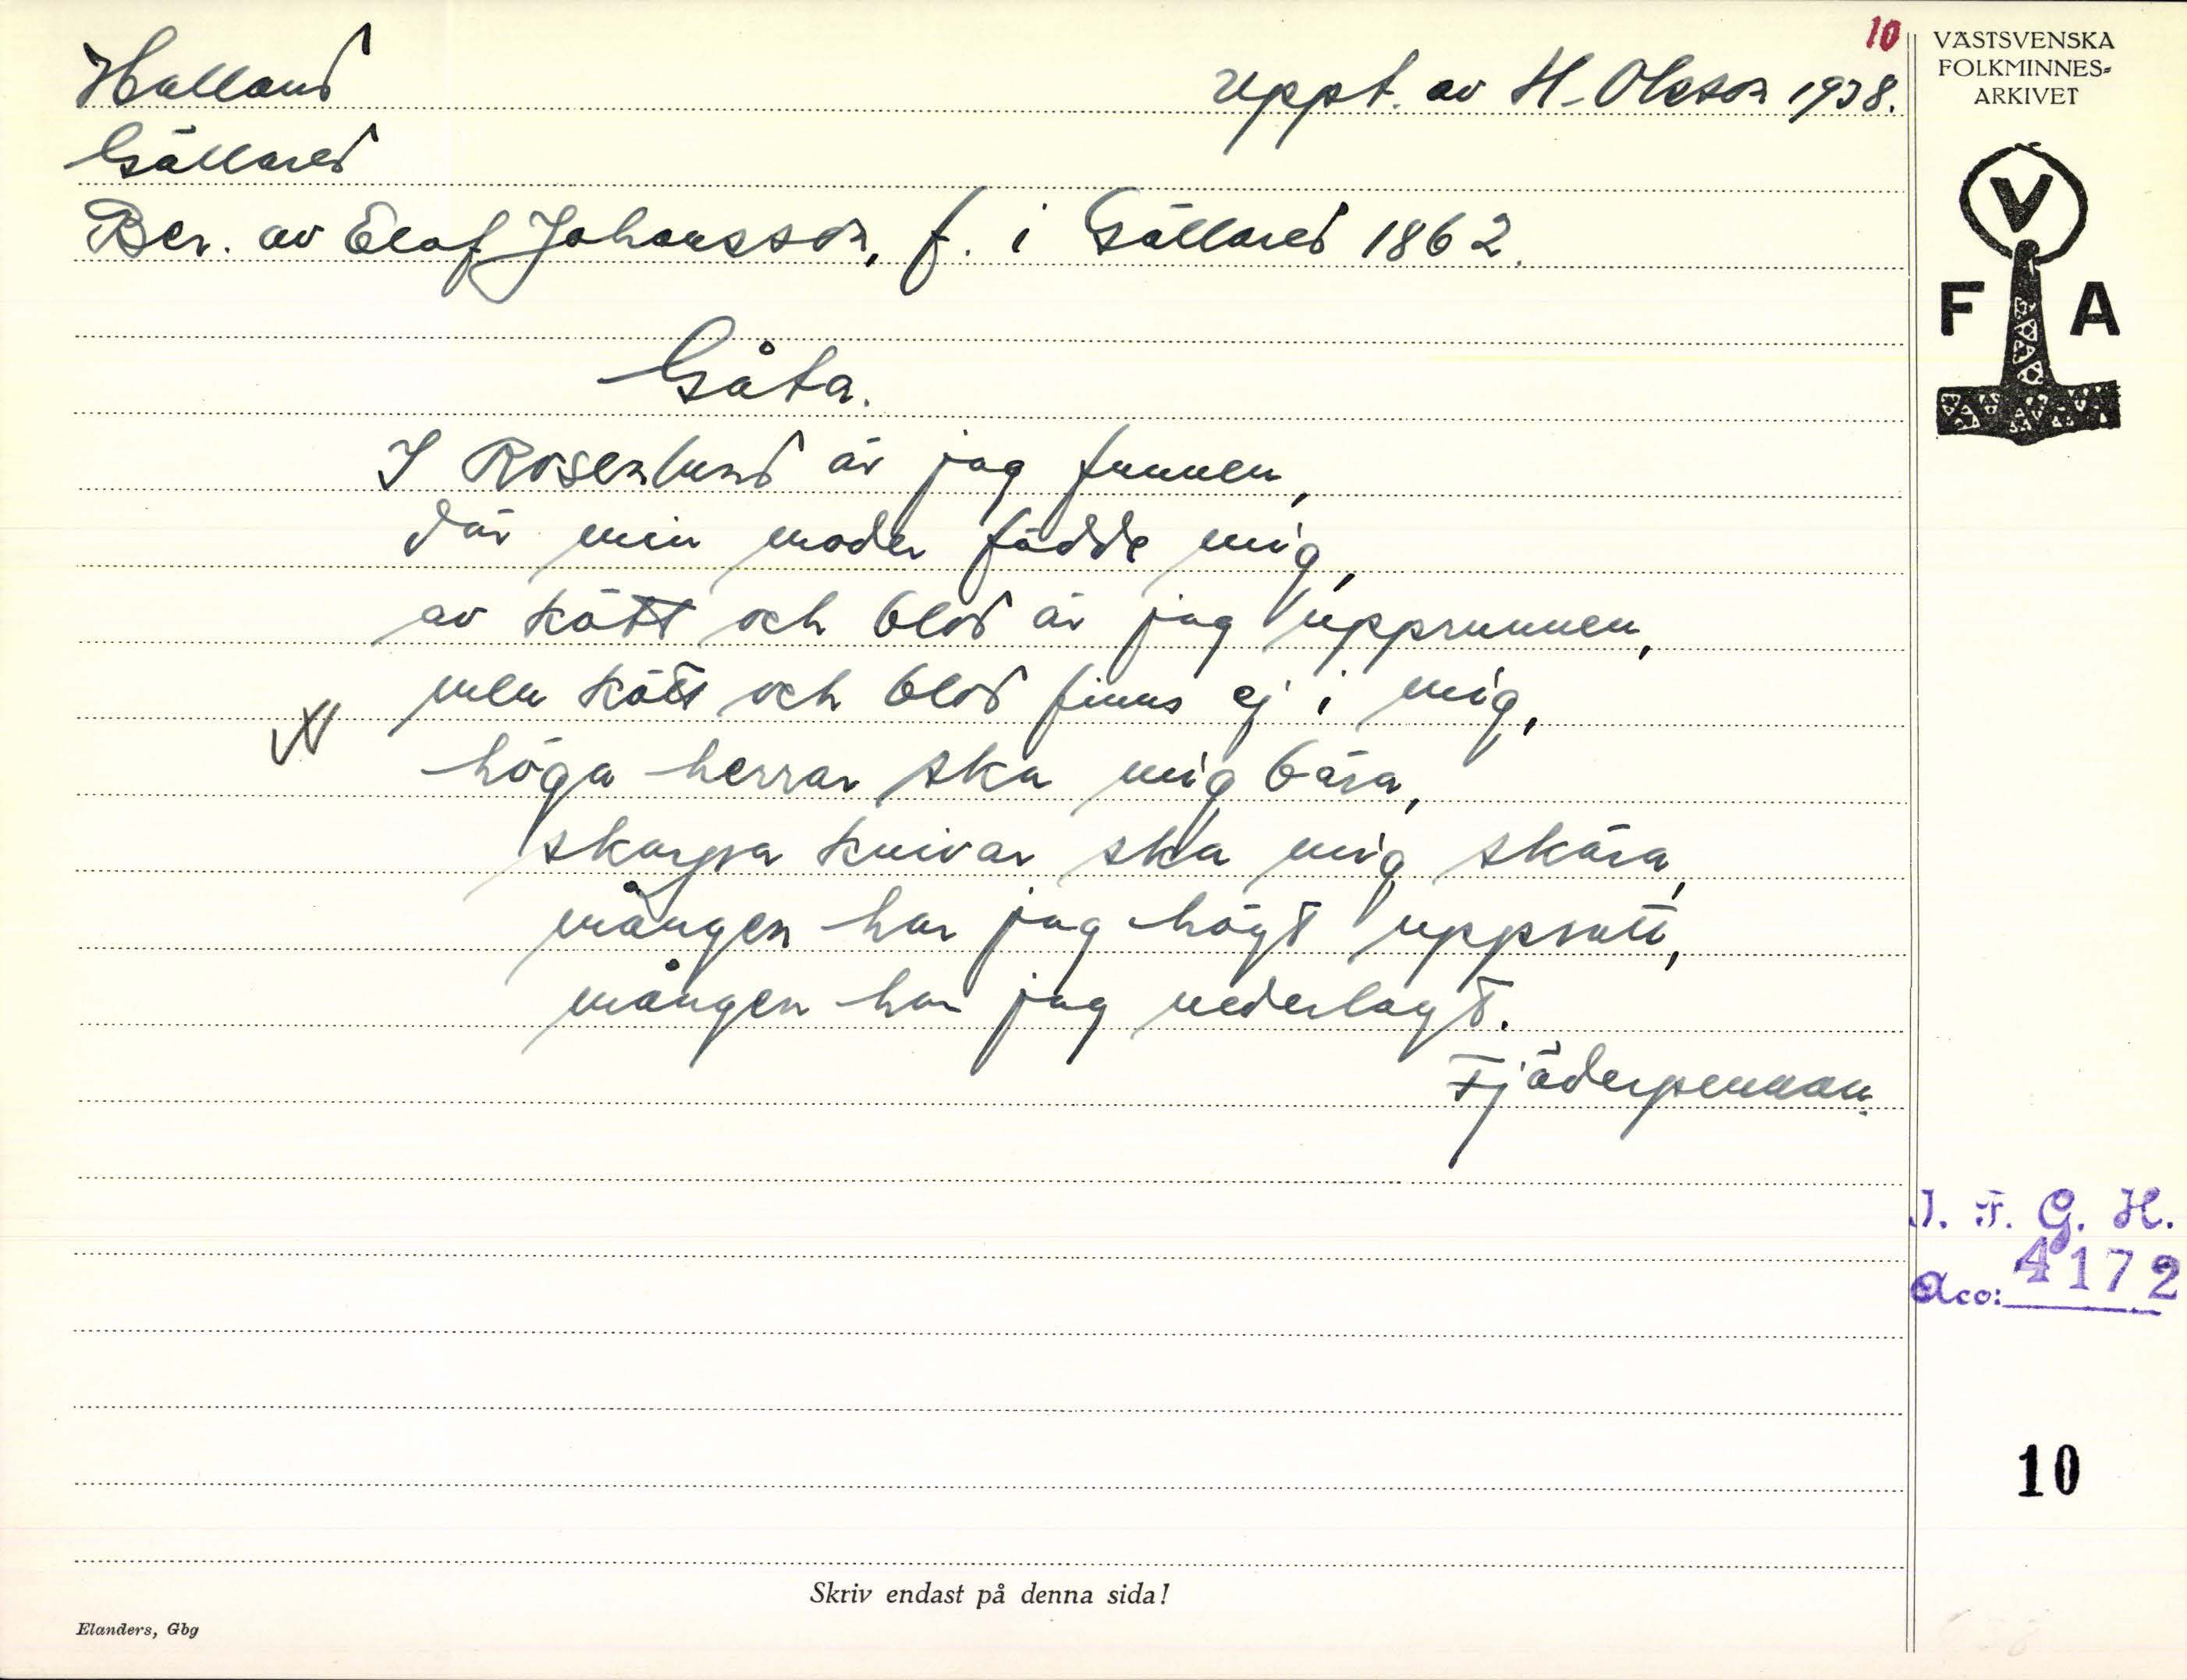 10
Halland
Uppt. av H. Olsson 1938.
Gällared
Ber. av Elof Johansson, f. i Gällared 1862.
Gåta.
I Rosenlund är jag funnen,
där min moder födde mig,
av kött och blod är jag upprunnen,
men kött och blod finns ej i mig,
höga herrar ska mig bära,
skarpa knivar ska mig skära,
mången har jag högt uppsatt,
mången har jag nederlagt.
Fjäderpennan.
VÄSTSVENSKA
FOLKMINNES-
ARKIVET
V
F A
I. F. G. H.
Acc: 4172
10
Skriv endast på denna sida!
Elanders, Gbg